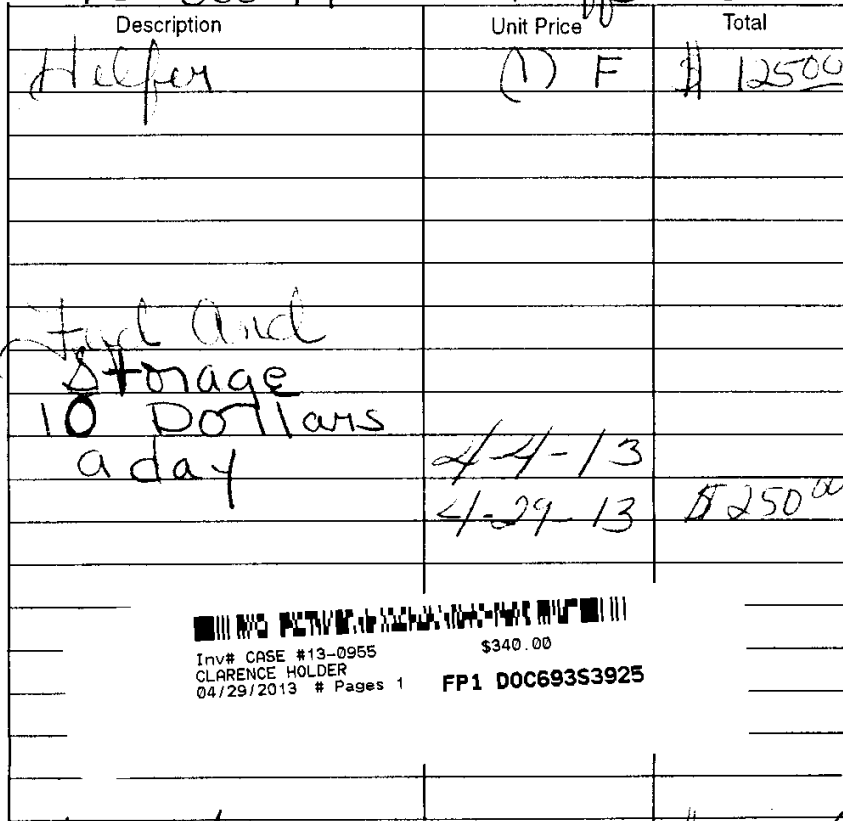 Description Unit Price Total
Heifer (1) F $ 12500
Feed And
Storage
10 Dollars
a day
4-4-13
4-29-13 $ 250 00
Inv# CASE #13-0955 $340.00
CLARENCE HOLDER
04/29/2013 # Pages 1 FP1 DOC693S3925